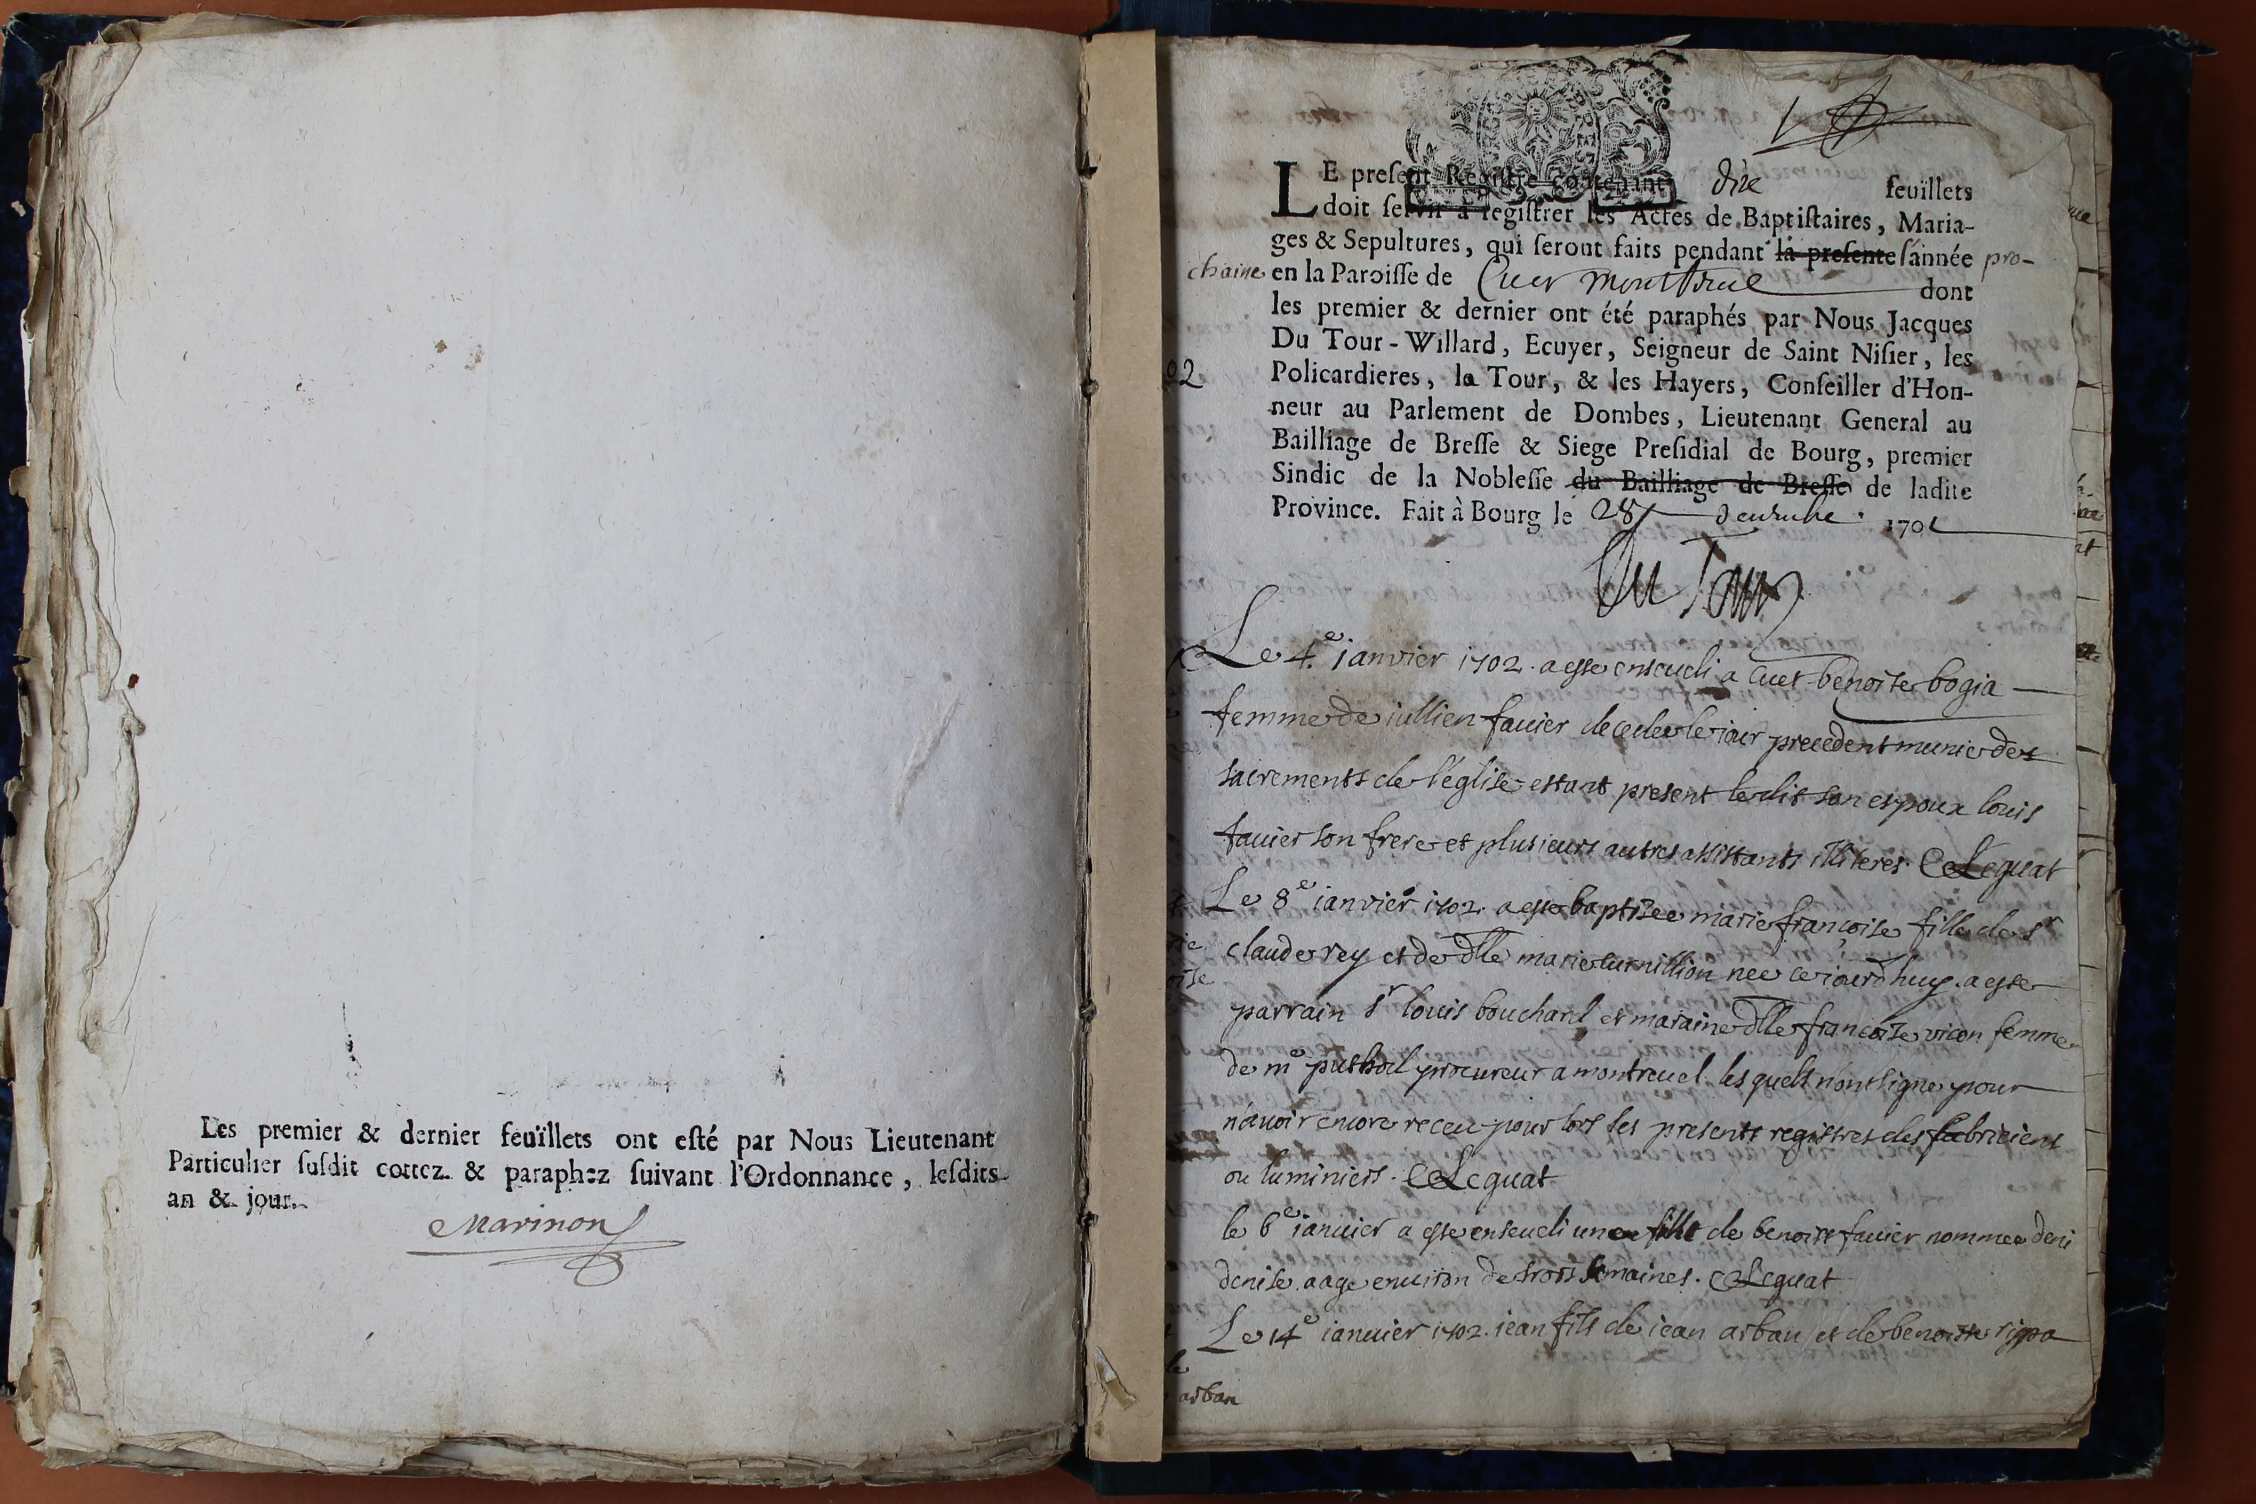 Les premier & dernier feuïllets ont esté par Nous Lieutenant
Particulier susdit cottez & paraphez suivant l'Ordonnance, lesdits
an & jour.
Marinon
LE present Registre contenant dix feuïllets
doit servir à registrer les Actes de Baptistaires, Maria-
ges & Sepultures, qui seront faits pendant la presente l'année pro-
chaine en la Paroisse de Cuet Montreuel dont
les premier & dernier ont été paraphés par Nous Jacques
Du Tour-Willard, Ecuyer, Seigneur de Saint Nisier, les
Policardieres, la Tour, & les Hayers, Conseiller d'Hon-
neur au Parlement de Dombes, Lieutenant General au
Bailliage de Bresse & Siege Presidial de Bourg, premier
Sindic de la Noblesse du Bailliage de Bresse de ladite
Province. Fait à Bourg le 28 decembre 1701
Du Tour
Le 4e ianvier 1702. a este enseueli a Cuet benoiste bogia
femme de iullien fauier decedee le iour precedent munie des
sacrements de l'église estant present ledit son espoux louis
fauier son frere et plusieurs autres assistants illiteres. Leguat
Le 8e ianvier 1702. a este baptisee marie françoise fille de sr
claude rey et de dlle marie curnillion nee ce iourd'huy. a este
parrain sr louis bouchard et maraine dlle françoise vicon femme
de me puthod procureur a montreuel. les quels n'ont signe pour
n'auoir encore receu pour lors les presents registres des fabriciens
ou luminiers. Leguat
le 6e ianuier a este enseueli une fille de benoist fauier nommee deni
denise. aage enuiron de trois semaines. Leguat
Le 14e ianuier 1702. iean fils de iean arban et de benoiste rippa
arban